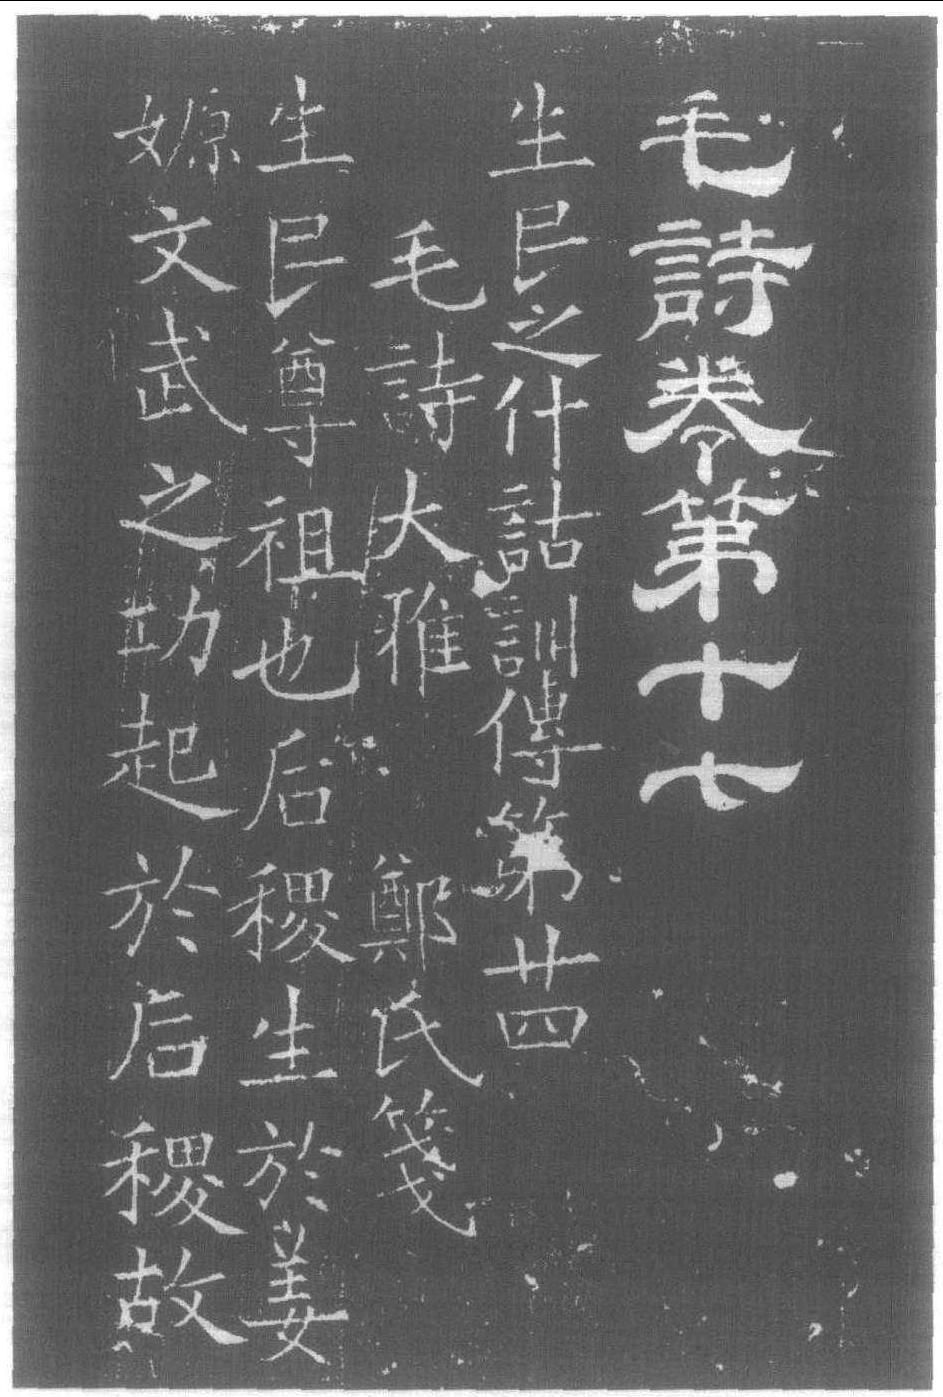 毛詩卷第十七
生民之什詁訓傳第廿四
毛詩大雅 鄭氏箋
生民尊祖也后稷生於姜
嫄文武之功起於后稷故